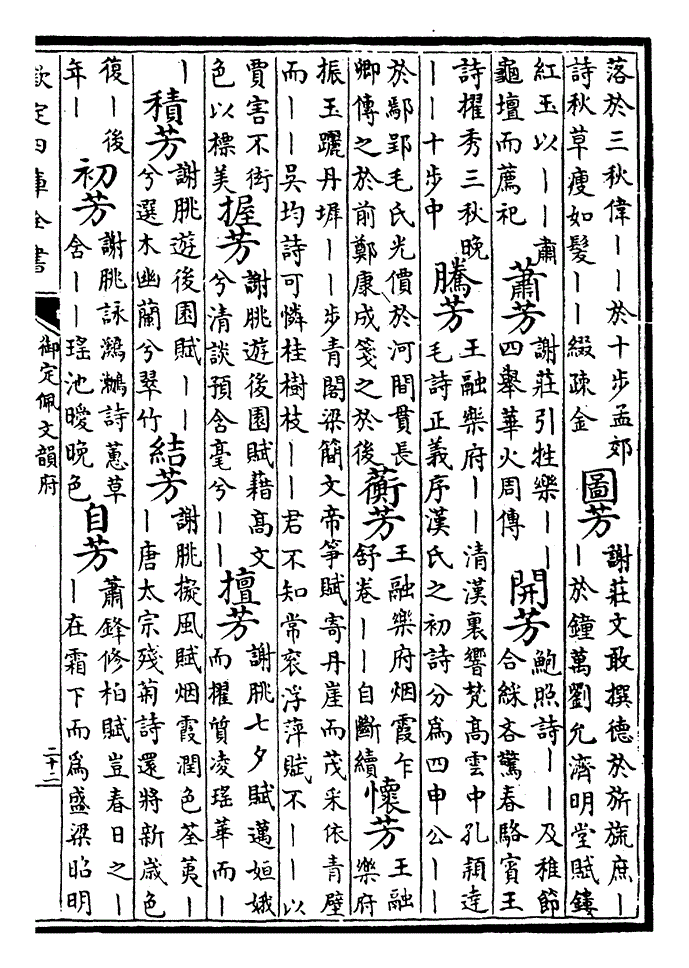 落於三秋偉丨丨於十步孟郊
詩秋草瘦如髮丨丨綴疎金
圖芳
謝莊文敢撰德於旂旒庶丨
丨於鐘萬劉允濟明堂賦鏤
紅玉以丨丨肅
龜壇而薦祀
蕭芳
謝莊引牲樂丨丨
四舉華火周傳
開芳
鮑照詩丨丨及稚節
合綵吝驚春駱賓王
詩擢秀三秋晚
丨丨十步中
騰芳
王融樂府丨丨清漢裏響梵高雲中孔頴逹
毛詩正義序漢氏之初詩分爲四申公丨丨
於鄢郢毛氏光價於河間貫長
卿傳之於前鄭康成箋之於後
蘅芳
王融樂府烟霞乍
舒卷丨丨自斷續
懷芳
王融
樂府
振玉躧丹墀丨丨步青閣梁簡文帝箏賦寄丹崖而茂采依青壁
而丨丨吳均詩可憐桂樹枝丨丨君不知常衮浮萍賦不丨丨以
賈害不衒
色以標美
握芳
謝朓遊後園賦藉髙文
兮清談預含毫兮丨丨
擅芳
謝朓七夕賦邁姮娥
而擢質凌瑤華而丨
丨
積芳
謝朓遊後園賦丨丨
兮選木幽蘭兮翠竹
結芳
謝朓擬風賦烟霞潤色荃荑丨
丨唐太宗殘菊詩還將新歲色
復丨後
年丨
初芳
謝朓詠鸂鶒詩蕙草
含丨丨瑤池曖晚色
自芳
蕭鋒修柏賦豈春日之丨
丨在霜下而爲盛梁昭明
欽定四庫全書
御定佩文韻府
二十二